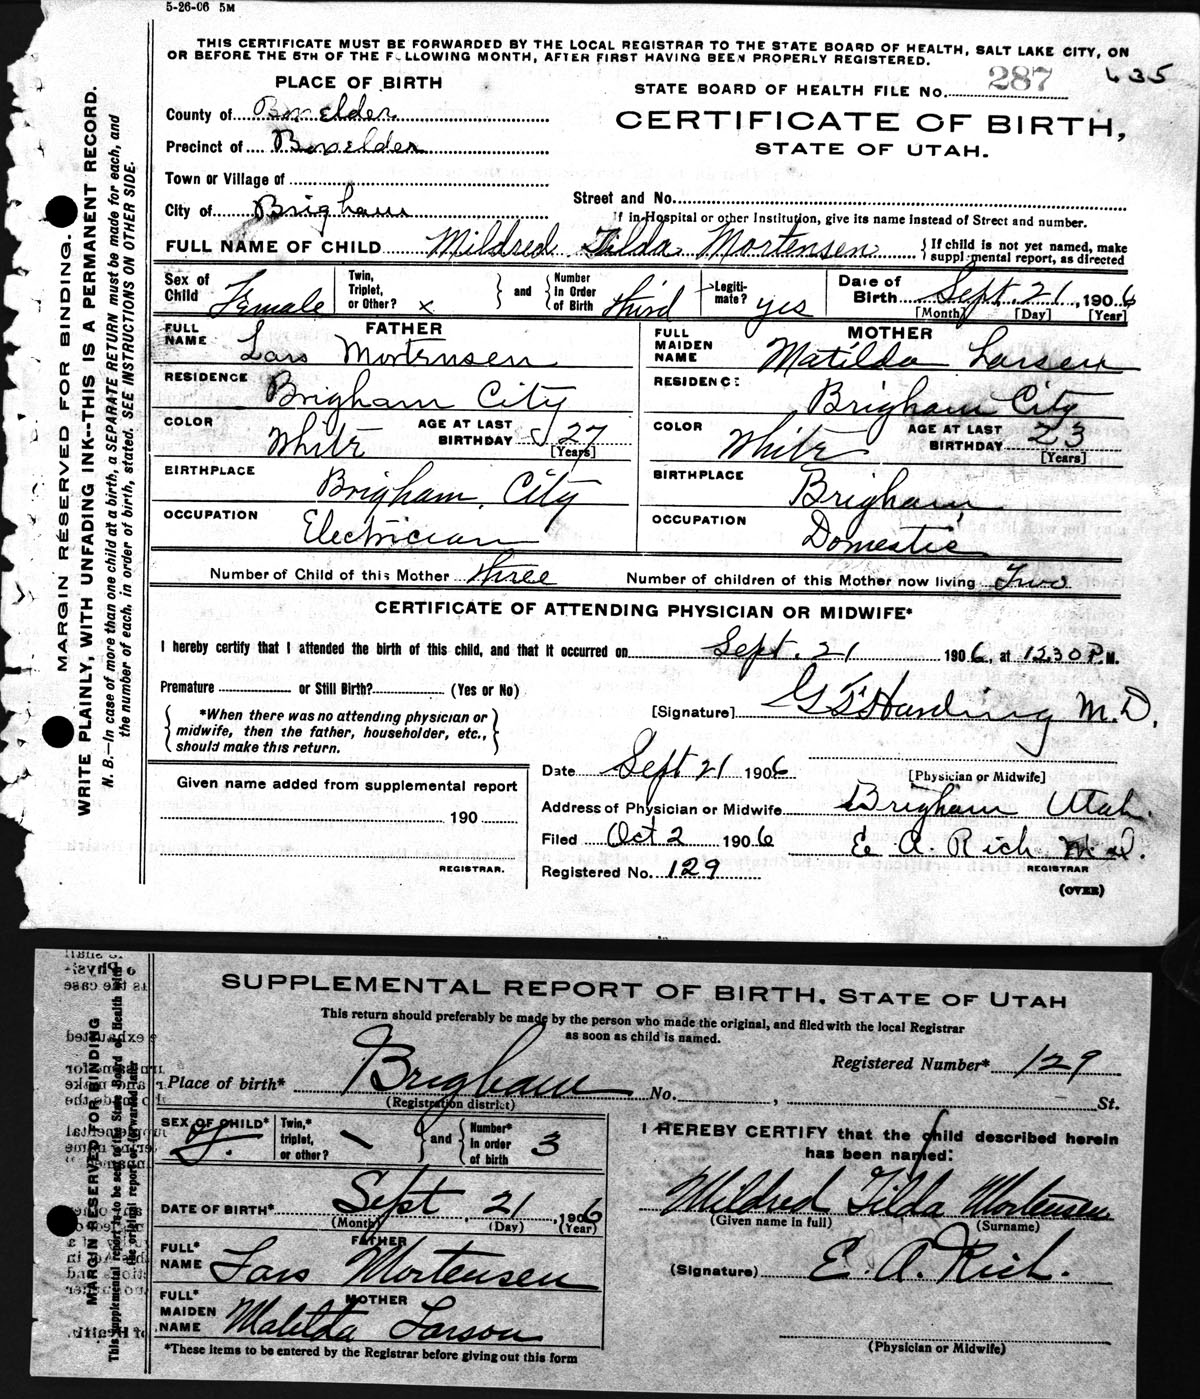 5-26-06 5M
THIS CERTIFICATE MUST BE FORWARDED BY THE LOCAL REGISTRAR TO THE STATE BOARD OF HEALTH, SALT LAKE CITY, ON
OR BEFORE THE 5TH OF THE F LLOWING MONTH, AFTER FIRST HAVING BEEN PROPERLY REGISTERED.
435
PLACE OF BIRTH
STATE BOARD OF HEALTH FILE No. 287
County of Boxelder
CERTIFICATE OF BIRTH,
Precinct of Boxelder
STATE OF UTAH.
Town or Village of
Street and No.
City of Brigham
If in Hospital or other Institution, give its name instead of Street and number.
FULL NAME OF CHILD Mildred Tilda Mortensen {If child is not yet named, make supplemental report, as directed
Sex of Child Female Twin, Triplet, or Other? x } and { Number In Order of Birth third Legiti-mate? yes Date of Birth Sept. 21, 1906
[Month] [Day] [Year]
FATHER
MOTHER
FULL NAME Lars Mortensen
FULL MAIDEN NAME Matilda Larsen
RESIDENCE Brigham City
RESIDENCE Brigham City
COLOR White AGE AT LAST BIRTHDAY 27 [Years]
COLOR White AGE AT LAST BIRTHDAY 23 [Years]
BIRTHPLACE Brigham City
BIRTHPLACE Brigham
OCCUPATION Electrician
OCCUPATION Domestic
Number of Child of this Mother three Number of children of this Mother now living Two
CERTIFICATE OF ATTENDING PHYSICIAN OR MIDWIFE*
I hereby certify that I attended the birth of this child, and that it occurred on Sept. 21 1906, at 12.30 P.M.
Premature or Still Birth? (Yes or No)
{*When there was no attending physician or midwife, then the father, householder, etc., should make this return.}
[Signature] Harding M.D.
[Physician or Midwife]
Date Sept 21 1906
Given name added from supplemental report
190
REGISTRAR.
Address of Physician or Midwife Brigham Utah.
Filed Oct 2 1906 E. A. Rich M.D.
REGISTRAR
Registered No. 129
(OVER)
MARGIN RESERVED FOR BINDING.
WRITE PLAINLY, WITH UNFADING INK--THIS IS A PERMANENT RECORD.
N. B.—In case of more than one child at a birth, a SEPARATE RETURN must be made for each, and
the number of each, in order of birth, stated. SEE INSTRUCTIONS ON OTHER SIDE.
SUPPLEMENTAL REPORT OF BIRTH, STATE OF UTAH
This return should preferably be made by the person who made the original, and filed with the local Registrar
as soon as child is named.
Registered Number* 129
Place of birth* Brigham No. , St.
(Registration district)
SEX OF CHILD* f. Twin,* triplet, or other? \ } and { Number* In order of birth 3
I HEREBY CERTIFY that the child described herein
has been named:
DATE OF BIRTH* Sept. 21, 1906
(Month) (Day) (Year)
Mildred Tilda Mortensen
(Given name in full) (Surname)
FATHER
FULL* NAME Lars Mortensen
(Signature) E. A. Rich.
MOTHER
FULL* MAIDEN NAME Matilda Larson
(Physician or Midwife)
*These items to be entered by the Registrar before giving out this form
MARGIN RESERVED FOR BINDING
This supplemental report is to be sent to the State Board of Health with
the original report or forwarded later